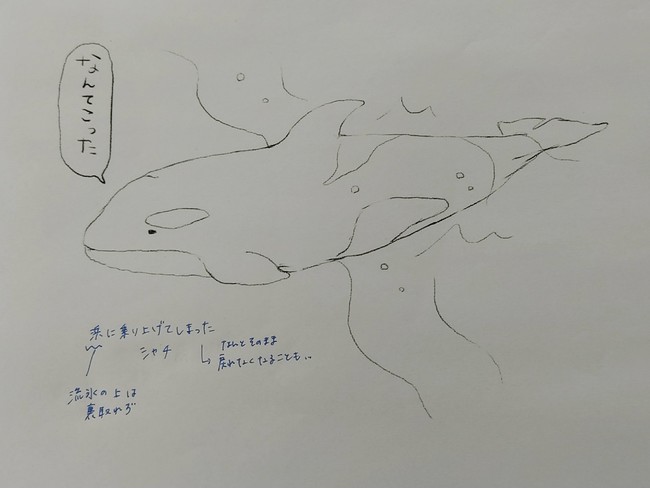 なんてこった
浜に乗り上げてしまった
シャチ
なんとそのまま
戻れなくなることも..
流氷の上は
裏取れず